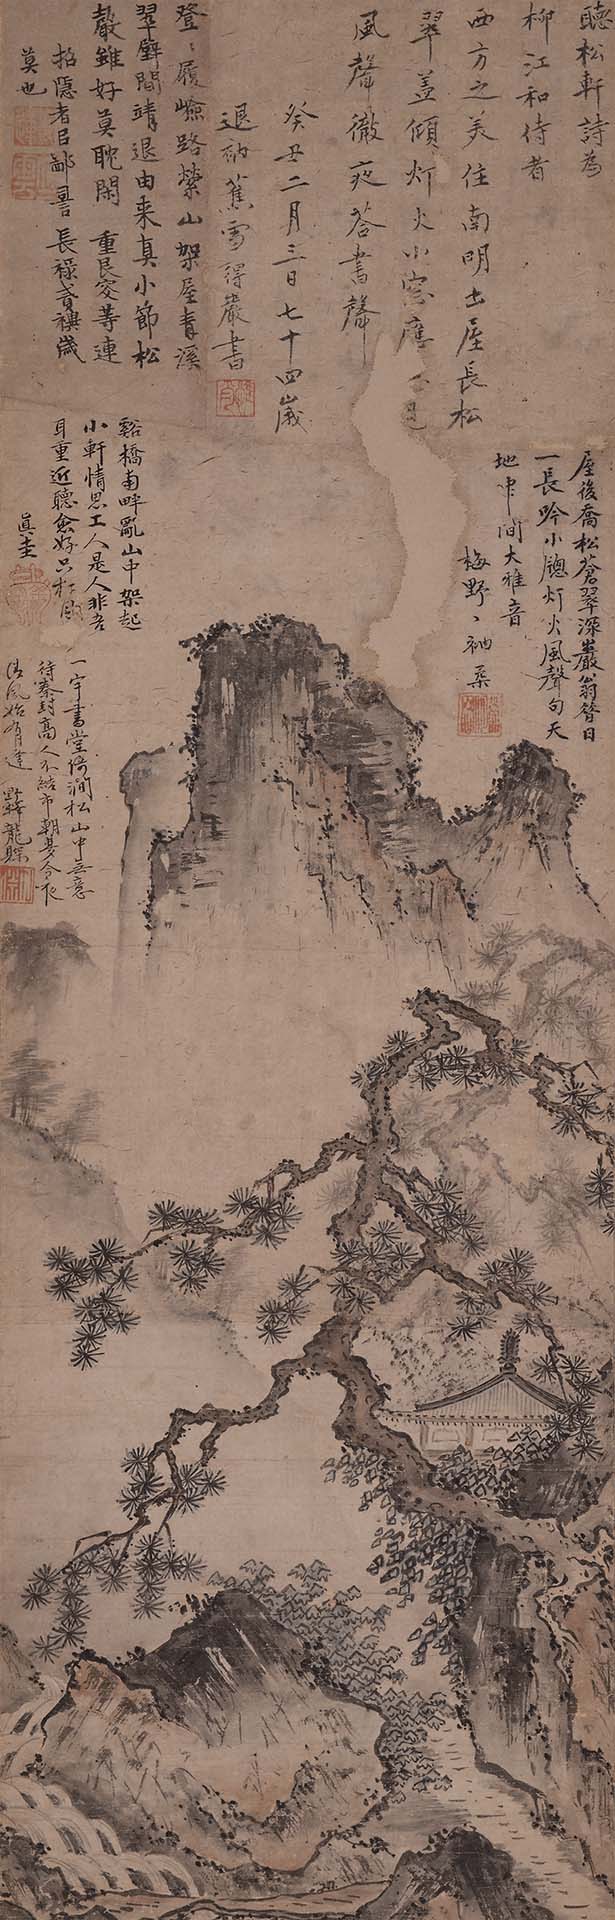 聴松軒詩為
柳江和侍者
西方之美住南明出屋長松
翠蓋傾灯火小窓應
風聲徹夜答書聲
癸丑二月三日七十四歳
退衲蕉雪得巖書
登々履嶮路縈山架屋青溪
翠壁間靖退由来真小節松
聲雖好莫耽閑 重艮
招隠者
莫也
屋後喬松蒼翠深巖翁昔日
一長吟小牎灯火風聲句天
地中間大雅音
梅野々衲
谿橋南畔亂山中架起
小軒情思工人是人非吾
耳重近聴愈好只松風
真圭
一宇書堂倚澗松山中無意
待秦封高人不結市朝夢今夜
清風始有逢 野釋龍